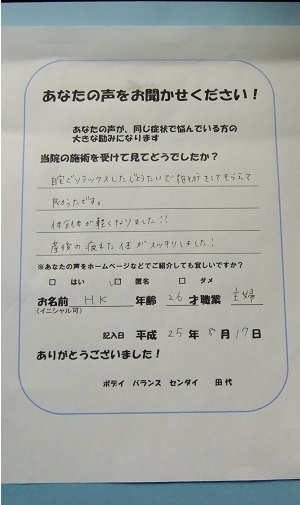 あなたの声をお聞かせください！
あなたの声が、同じ症状で悩んでいる方の
大きな励みになります
当院の施術を受けて見てどうでしたか？
自宅でリラックスしたじょうたいで施術をしてもらえて
良かったです。
体全体が軽くなりました!!
産後の疲れた体がスッキリしました！
※あなたの声をホームページなどでご紹介しても宜しいですか？
□ はい ☑ 匿名 □ ダメ
お名前 HK 年齢 26 才 職業 主婦
(イニシャル可)
記入日 平成 25 年 8 月 17 日
ありがとうございました！
ボディ バランス センダイ 田代